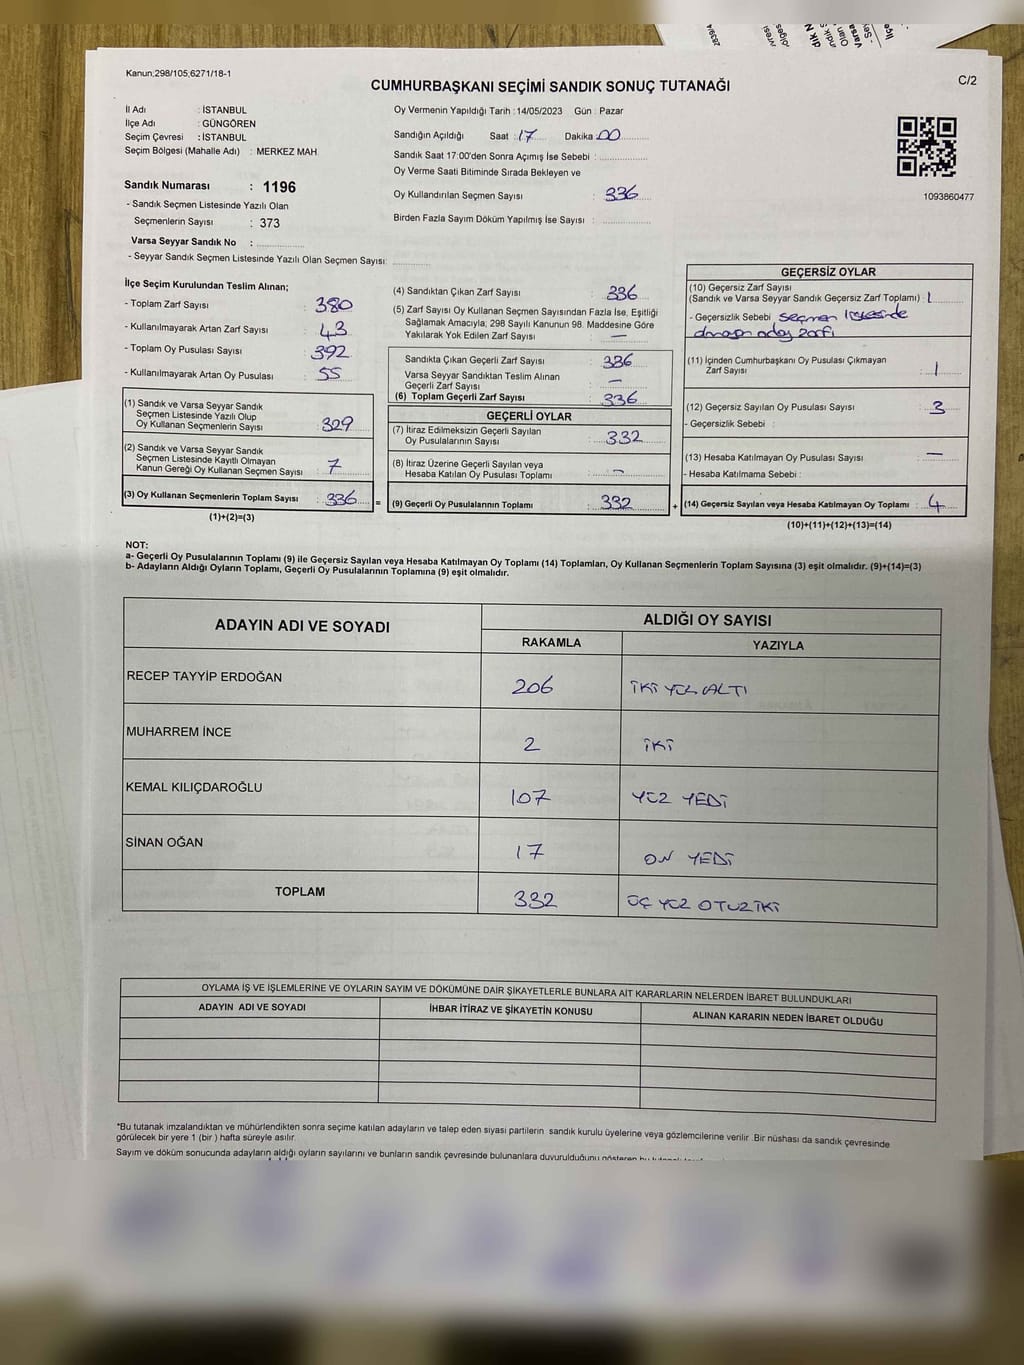 Kanun;298/105;6271/18-1
CUMHURBAŞKANI SEÇİMİ SANDIK SONUÇ TUTANAĞI
C/2
İl Adı : İSTANBUL
İlçe Adı : GÜNGÖREN
Seçim Çevresi : İSTANBUL
Seçim Bölgesi (Mahalle Adı) : MERKEZ MAH.
Sandık Numarası : 1196
- Sandık Seçmen Listesinde Yazılı Olan
Seçmenlerin Sayısı : 373
Varsa Seyyar Sandık No :
- Seyyar Sandık Seçmen Listesinde Yazılı Olan Seçmen Sayısı:
Oy Vermenin Yapıldığı Tarih : 14/05/2023 Gün : Pazar
Sandığın Açıldığı Saat : 17 Dakika 00
Sandık Saat 17:00'den Sonra Açımış İse Sebebi :
Oy Verme Saati Bitiminde Sırada Bekleyen ve
Oy Kullandırılan Seçmen Sayısı : 336
Birden Fazla Sayım Döküm Yapılmış İse Sayısı :
1093860477
İlçe Seçim Kurulundan Teslim Alınan;
- Toplam Zarf Sayısı : 380
- Kullanılmayarak Artan Zarf Sayısı : 43
- Toplam Oy Pusulası Sayısı : 392
- Kullanılmayarak Artan Oy Pusulası : 55
(1) Sandık ve Varsa Seyyar Sandık
Seçmen Listesinde Yazılı Olup
Oy Kullanan Seçmenlerin Sayısı : 329
(2) Sandık ve Varsa Seyyar Sandık
Seçmen Listesinde Kayıtlı Olmayan
Kanun Gereği Oy Kullanan Seçmen Sayısı : 7
(3) Oy Kullanan Seçmenlerin Toplam Sayısı : 336 =
(1)+(2)=(3)
(4) Sandıktan Çıkan Zarf Sayısı : 336
(5) Zarf Sayısı Oy Kullanan Seçmen Sayısından Fazla İse, Eşitliği
Sağlamak Amacıyla; 298 Sayılı Kanunun 98. Maddesine Göre
Yakılarak Yok Edilen Zarf Sayısı : —
Sandıkta Çıkan Geçerli Zarf Sayısı : 336
Varsa Seyyar Sandıktan Teslim Alınan
Geçerli Zarf Sayısı : —
(6) Toplam Geçerli Zarf Sayısı : 336
GEÇERLİ OYLAR
(7) İtiraz Edilmeksizin Geçerli Sayılan
Oy Pusulalarının Sayısı : 332
(8) İtiraz Üzerine Geçerli Sayılan veya
Hesaba Katılan Oy Pusulası Toplamı : —
(9) Geçerli Oy Pusulalarının Toplamı : 332 +
GEÇERSİZ OYLAR
(10) Geçersiz Zarf Sayısı
(Sandık ve Varsa Seyyar Sandık Geçersiz Zarf Toplamı) : 1
- Geçersizlik Sebebi : seçmen listesinde
olmayan aday zarfı
(11) İçinden Cumhurbaşkanı Oy Pusulası Çıkmayan
Zarf Sayısı : 1
(12) Geçersiz Sayılan Oy Pusulası Sayısı : 3
- Geçersizlik Sebebi :
(13) Hesaba Katılmayan Oy Pusulası Sayısı : —
- Hesaba Katılmama Sebebi :
(14) Geçersiz Sayılan veya Hesaba Katılmayan Oy Toplamı : 4
(10)+(11)+(12)+(13)=(14)
NOT:
a- Geçerli Oy Pusulalarının Toplamı (9) ile Geçersiz Sayılan veya Hesaba Katılmayan Oy Toplamı (14) Toplamları, Oy Kullanan Seçmenlerin Toplam Sayısına (3) eşit olmalıdır. (9)+(14)=(3)
b- Adayların Aldığı Oyların Toplamı, Geçerli Oy Pusulalarının Toplamına (9) eşit olmalıdır.
ADAYIN ADI VE SOYADI
ALDIĞI OY SAYISI
RAKAMLA YAZIYLA
RECEP TAYYİP ERDOĞAN 206 İKİ YÜZ ALTI
MUHARREM İNCE 2 İKİ
KEMAL KILIÇDAROĞLU 107 YÜZ YEDİ
SİNAN OĞAN 17 ON YEDİ
TOPLAM 332 ÜÇ YÜZ OTUZ İKİ
OYLAMA İŞ VE İŞLEMLERİNE VE OYLARIN SAYIM VE DÖKÜMÜNE DAİR ŞİKAYETLERLE BUNLARA AİT KARARLARIN NELERDEN İBARET BULUNDUKLARI
ADAYIN ADI VE SOYADI İHBAR İTİRAZ VE ŞİKAYETİN KONUSU ALINAN KARARIN NEDEN İBARET OLDUĞU
*Bu tutanak imzalandıktan ve mühürlendikten sonra seçime katılan adayların ve talep eden siyasi partilerin sandık kurulu üyelerine veya gözlemcilerine verilir .Bir nüshası da sandık çevresinde
görülecek bir yere 1 (bir ) hafta süreyle asılır.
Sayım ve döküm sonucunda adayların aldığı oyların sayılarını ve bunların sandık çevresinde bulunanlara duyurulduğunu gösteren bu